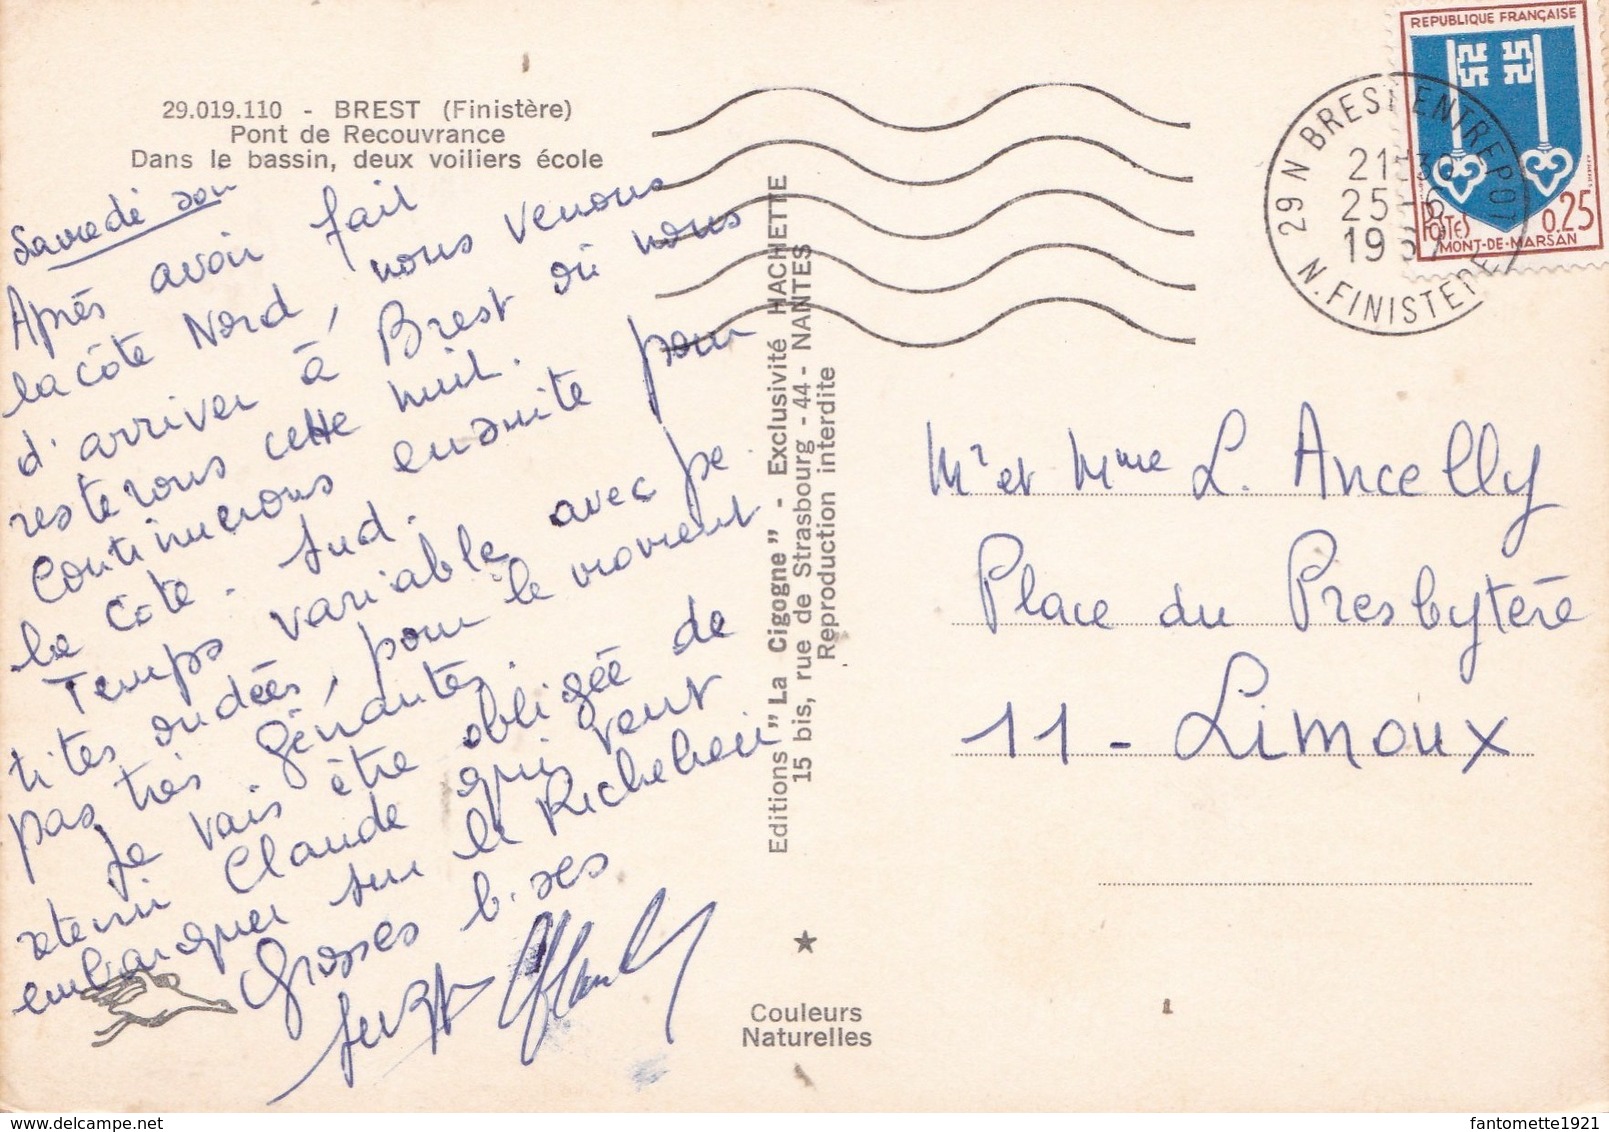 29.019.110 - BREST (Finistère)
Pont de Recouvrance
Dans le bassin, deux voiliers école
Samedi soir
Après avoir fait
la côte Nord, nous venons
d'arriver à Brest où nous
resterons cette nuit.
Continuerons ensuite pour
la côte. Sud.
Temps variable avec pe
tites ondées, pour le moment
pas très gênantes.
Je vais être obligée de
retenir Claude qui veut
embarquer sur le Richelieu
Grosses bises
Editions "La Cigogne" - Exclusivité HACHETTE
15 bis, rue de Strasbourg - 44 - NANTES
Reproduction interdite
Couleurs
Naturelles
REPUBLIQUE FRANÇAISE
POSTES 0.25
MONT-DE-MARSAN
29 N BREST ENTREPOT
21-30
25-6
1967
N. FINISTERE
Mr et Mme L. Ancelly
Place du Presbytère
11 - Limoux
delcampe.net
fantomette1921